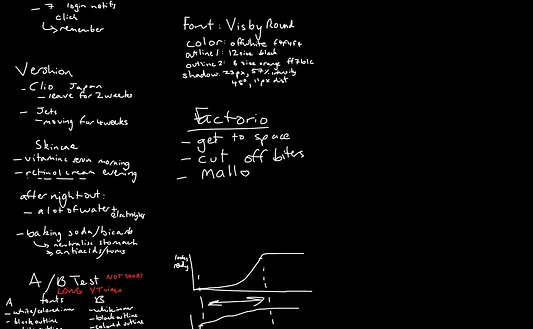 - 7 login notifs
click
↳ remember
Vershion
- Clio Japan
- leave for 2 weeks
- Jets
- moving for 4 weeks
Skincare
- vitamin c serum morning
- retinol cream evening
after night out:
- a lot of water + electrolytes
- baking soda/bicarb
↳ neutralise stomach
↳ antiacids/tums
A/B Test NOT SHORT
LONG YT video
A fonts B
- white/colored inner - white inner
- black outline - black outline
- colored outline
Font: Visby Round
color: offwhite f4f4f4
outline 1: 12 size black
outline 2: 6 size orange ff7b1c
shadow: 22px, 57%
45°, 11px dist
Factorio
- get to space
- cut off biters
- mallo